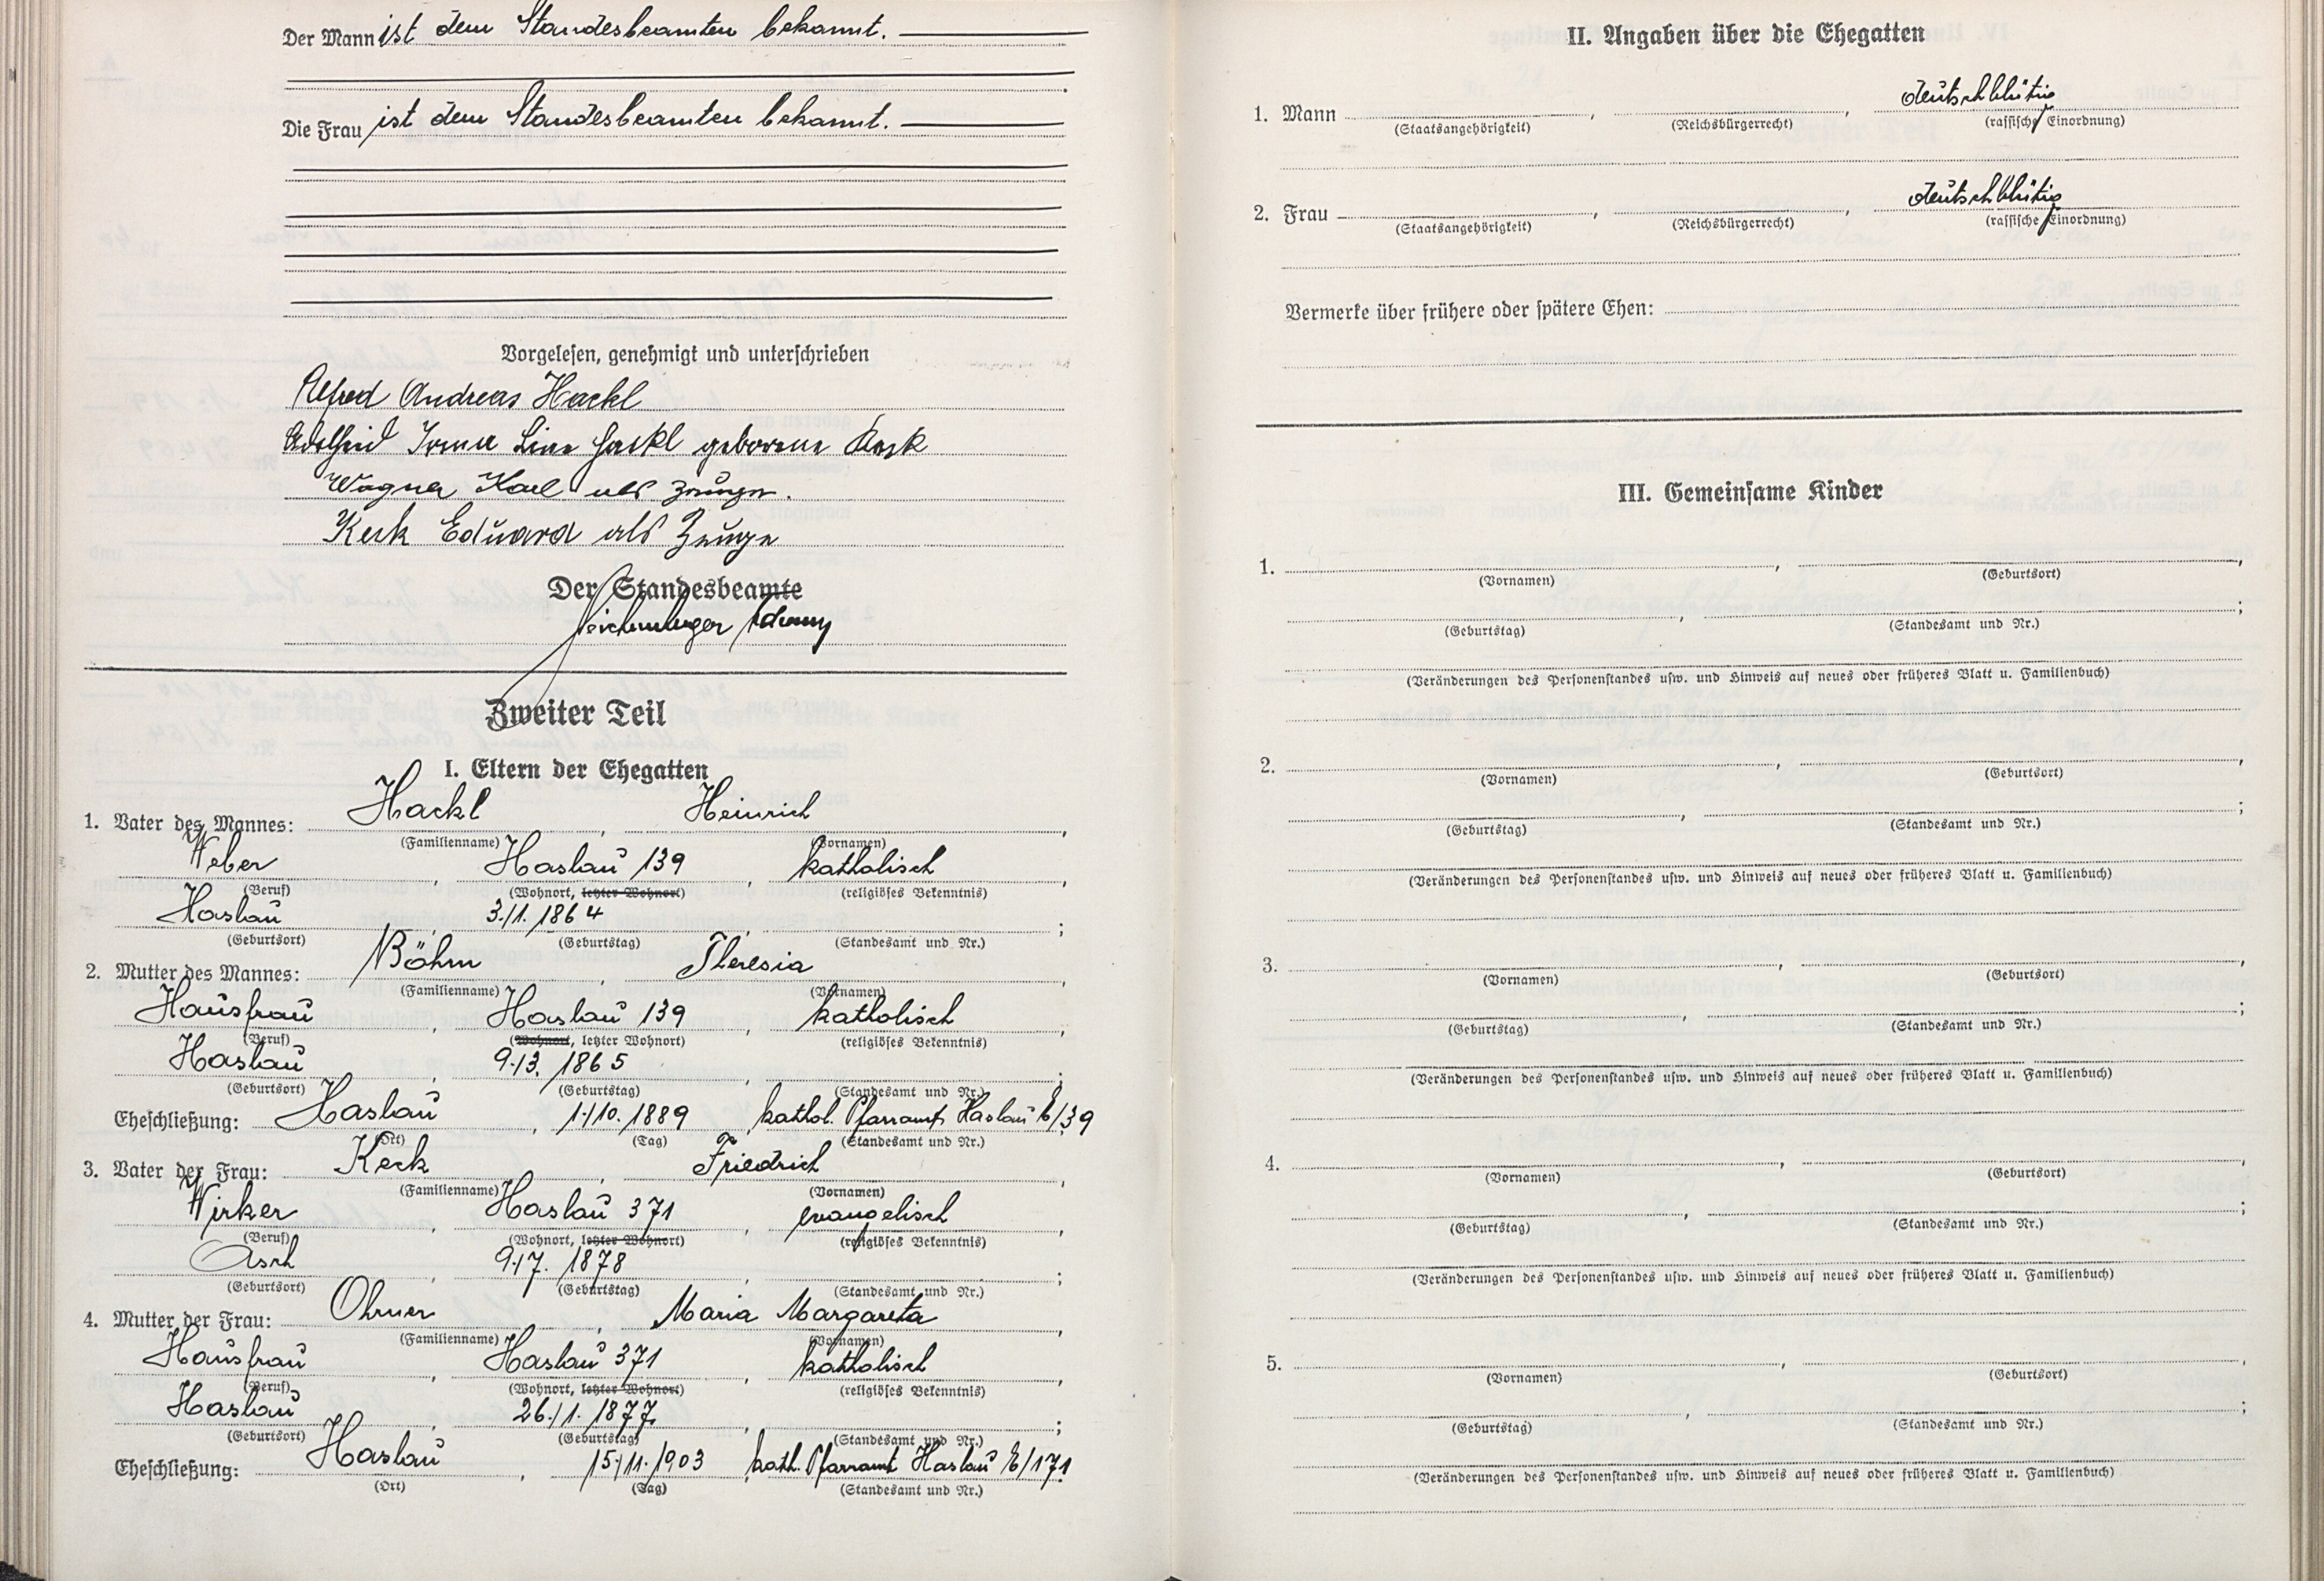 Der Mann ist dem Standesbeamten bekannt.
Die Frau ist dem Standesbeamten bekannt.
Vorgelesen, genehmigt und unterschrieben
Alfred Andreas Hackl
Adelheid Irma Line Hackl geborene Keck
Wagner Karl als Zeuge.
Keck Eduard als Zeuge
Der Standesbeamte
Zweiter Teil
I. Eltern der Ehegatten
1. Vater des Mannes: Hackl, Heinrich,
(Familienname) (Vornamen)
Weber, Haslau 139, katholisch,
(Beruf) (Wohnort, letzter Wohnort) (religiöses Bekenntnis)
Haslau, 3./1. 1864, ;
(Geburtsort) (Geburtstag) (Standesamt und Nr.)
2. Mutter des Mannes: Böhm, Theresia,
(Familienname) (Vornamen)
Hausfrau, Haslau 139, katholisch,
(Beruf) (Wohnort, letzter Wohnort) (religiöses Bekenntnis)
Haslau, 9./3. 1865, ;
(Geburtsort) (Geburtstag) (Standesamt und Nr.)
Eheschließung: Haslau, 1./10. 1889, kathol. Pfarramt Haslau E/39
(Ort) (Tag) (Standesamt und Nr.)
3. Vater der Frau: Keck, Friedrich,
(Familienname) (Vornamen)
Wirker, Haslau 371, evangelisch,
(Beruf) (Wohnort, letzter Wohnort) (religiöses Bekenntnis)
Asch, 9./7. 1878, ;
(Geburtsort) (Geburtstag) (Standesamt und Nr.)
4. Mutter der Frau: Ohrner, Maria Margareta,
(Familienname) (Vornamen)
Hausfrau, Haslau 371, katholisch,
(Beruf) (Wohnort, letzter Wohnort) (religiöses Bekenntnis)
Haslau, 26./1. 1877, ;
(Geburtsort) (Geburtstag) (Standesamt und Nr.)
Eheschließung: Haslau, 15./11. 1903, kath. Pfarramt Haslau E/171
(Ort) (Tag) (Standesamt und Nr.)
II. Angaben über die Ehegatten
1. Mann , , deutschblütig
(Staatsangehörigkeit) (Reichsbürgerrecht) (rassische Einordnung)
2. Frau , , deutschblütig
(Staatsangehörigkeit) (Reichsbürgerrecht) (rassische Einordnung)
Vermerke über frühere oder spätere Ehen:
III. Gemeinsame Kinder
1. , ,
(Vornamen) (Geburtsort)
, ;
(Geburtstag) (Standesamt und Nr.)
(Veränderungen des Personenstandes usw. und Hinweis auf neues oder früheres Blatt u. Familienbuch)
2. , ,
(Vornamen) (Geburtsort)
, ;
(Geburtstag) (Standesamt und Nr.)
(Veränderungen des Personenstandes usw. und Hinweis auf neues oder früheres Blatt u. Familienbuch)
3. , ,
(Vornamen) (Geburtsort)
, ;
(Geburtstag) (Standesamt und Nr.)
(Veränderungen des Personenstandes usw. und Hinweis auf neues oder früheres Blatt u. Familienbuch)
4. , ,
(Vornamen) (Geburtsort)
, ;
(Geburtstag) (Standesamt und Nr.)
(Veränderungen des Personenstandes usw. und Hinweis auf neues oder früheres Blatt u. Familienbuch)
5. , ,
(Vornamen) (Geburtsort)
, ;
(Geburtstag) (Standesamt und Nr.)
(Veränderungen des Personenstandes usw. und Hinweis auf neues oder früheres Blatt u. Familienbuch)